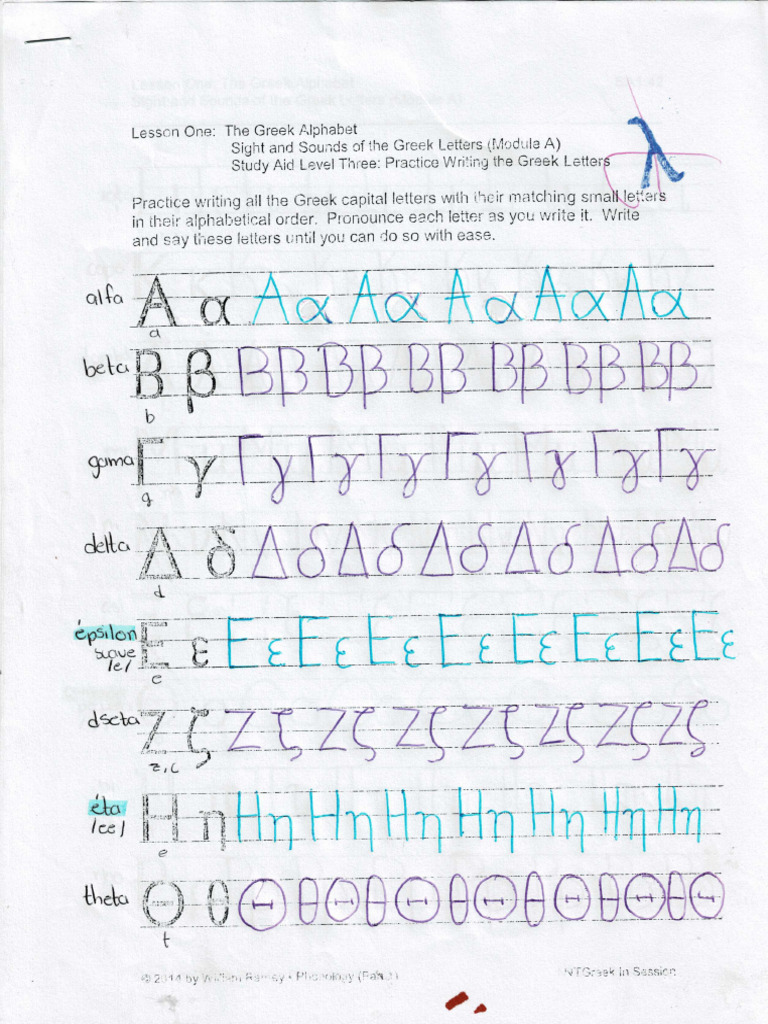 Lesson One: The Greek Alphabet
Sight and Sounds of the Greek Letters (Module A)
Study Aid Level Three: Practice Writing the Greek Letters
λ
Practice writing all the Greek capital letters with their matching small letters
in their alphabetical order. Pronounce each letter as you write it. Write
and say these letters until you can do so with ease.
alfa Α α Αα Αα Αα Αα Αα
a
beta Β β Ββ Ββ Ββ Ββ Ββ Ββ
b
gama Γ γ Γγ Γγ Γγ Γγ Γγ Γγ Γγ
g
delta Δ δ Δδ Δδ Δδ Δδ Δδ Δδ
d
épsilon Ε ε Εε Εε Εε Εε Εε Εε Εε Εε
suave
/e/
e
dseta Ζ ζ Ζζ Ζζ Ζζ Ζζ Ζζ Ζζ Ζζ
z, c
éta Η η Ηη Ηη Ηη Ηη Ηη Ηη Ηη
/ee/
e
theta Θ θ Θ θ Θ θ Θ θ Θ θ Θ θ Θ θ Θ
t
© 2014 by William Ramey • Phonology (Part 1) NTGreek In Session